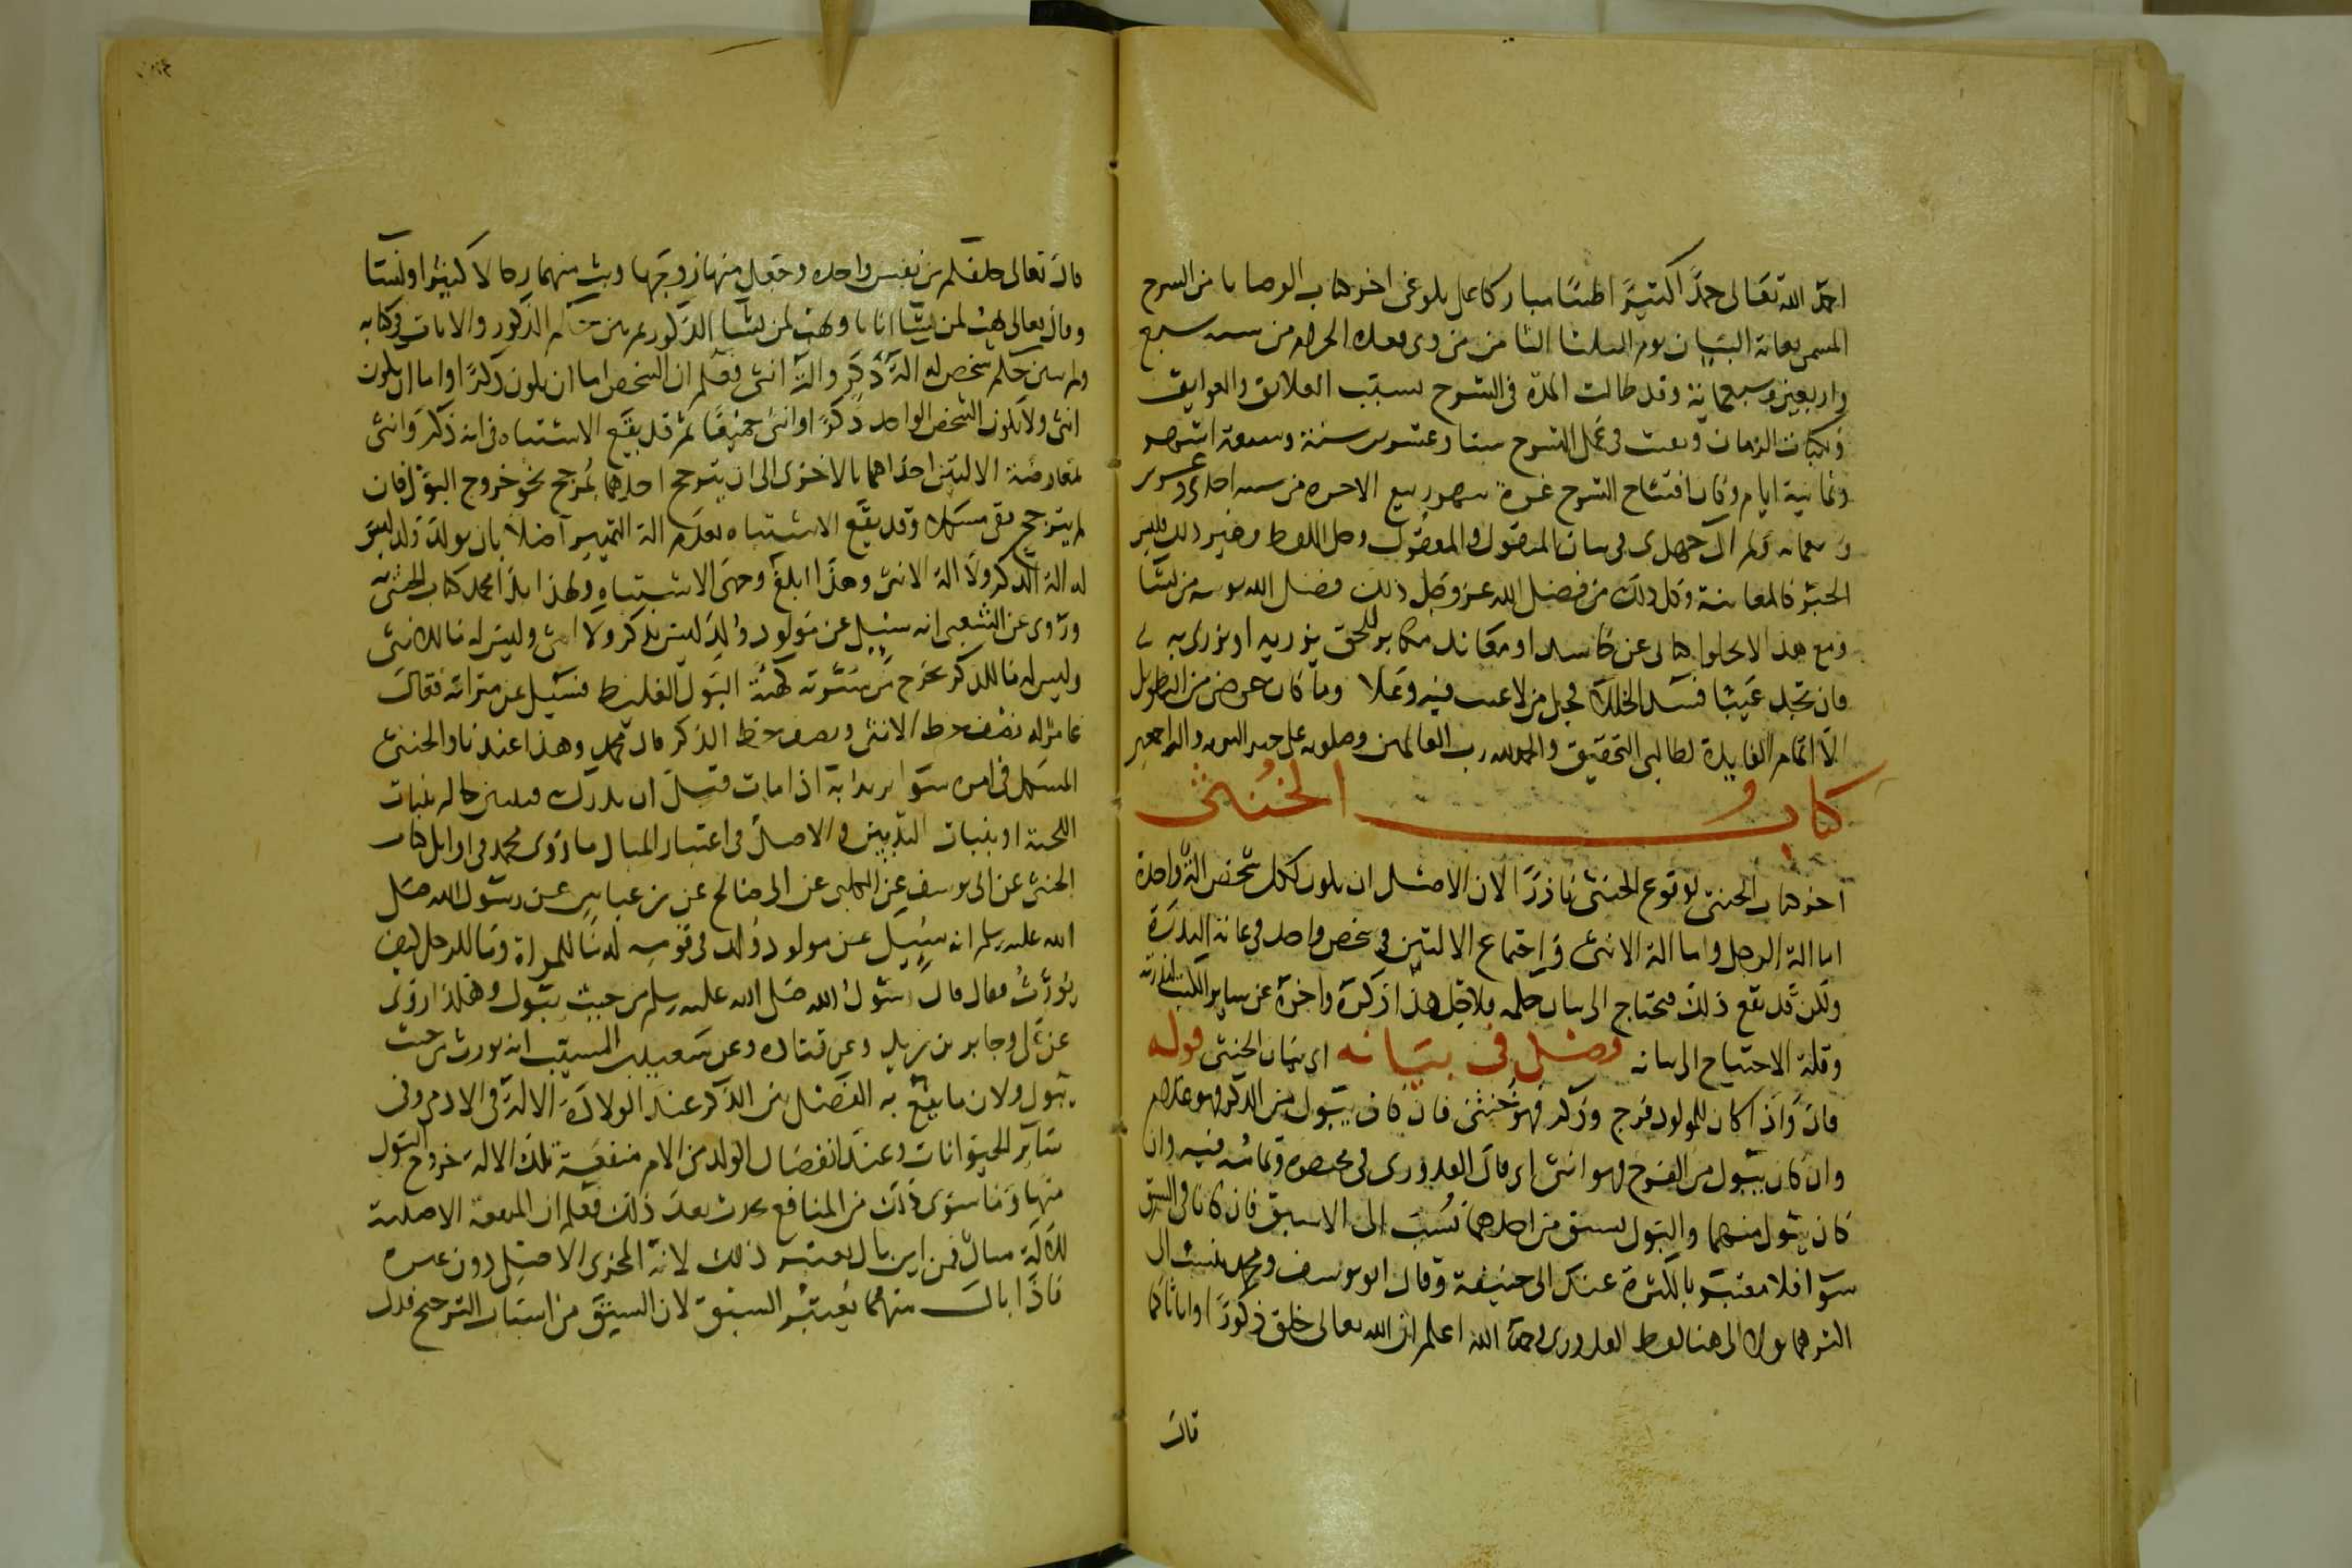 احمد الله تعالى حمدا كثيرا طيبا مباركا على بلوغى اخر كتاب الوصايا من الشرح
المسمى بغاية البيان يوم الثلثا الثامن من ذى القعدة الحرام من سنة سبع
واربعين وسبعماية وقد طالت المدة فى الشرح بسبب العلائق والعوايق
ونكبات الزمان وبقيت فى عمل الشرح ستا وعشرين سنة وسبعة اشهر
وثمانية ايام وكان افتتاح الشرح غرة شهر ربيع الاخرة من سنة احدى وعشرين
وسبعماية ولم ال جهدى فى بيان المنقول والمعقول وحل اللفظ وغير ذلك فليس
الخبر كالمعاينة وكل ذلك من فضل الله عز وجل ذلك فضل الله يوتيه من يشا
ومع هذا لا يخلوا كتابى عن حاسد او معاند مكابر للحق يزريه او يزرى به
فان تجد عيبا فسد الخللا فجل من لا عيب فيه وعلا وما كان غرضى من التطويل
الا اتمام الفايدة لطالبى التحقيق والحمد لله رب العالمين وصلوته على خير البرية واله اجمعين
كتاب الخنثى
اخر كتاب الخنثى لوقوع الخنثى نادرا لان الاصل ان يكون لكل شخص الة واحدة
اما الة الرجل واما الة الانثى واجتماع الالتين فى شخص واحد فى غاية الندرة
ولكن قد يقع ذلك فيحتاج الى بيان حكمه فلاجل هذا ذكره واخره عن ساير الكتب لندرته
وقلة الاحتياج الى بيانه فصل فى بيانه اى بيان الخنثى قوله
قال واذا كان للمولود فرج وذكر فهو خنثى فان كان يبول من الذكر فهو غلام
وان كان يبول من الفرج فهو انثى اى قال القدورى فى مختصره وتمامه فيه وان
كان يبول منهما والبول يسبق من احدهما نسب الى الاسبق فان كانا فى السبق
سوا فلا معتبر بالكثرة عند ابى حنيفة وقال ابو يوسف ومحمد ينسب الى
اكثرهما بولا الى هنا لفظ القدورى رحمه الله اعلم ان الله تعالى خلق ذكورا واناثا كما
قال
قال تعالى خلقكم من نفس واحدة وجعل منها زوجها وبث منهما رجالا كثيرا ونسا
وقال تعالى يهب لمن يشا اناثا ويهب لمن يشا الذكور ثم بين حكم الذكور والاناث فى كتابه
ولم يبين حكم شخص له الة ذكر والة انثى فعلم ان الشخص اما ان يكون ذكرا او اما ان يكون
انثى ولا يكون الشخص الواحد ذكرا وانثى جميعا ثم قد يقع الاشتباه فى انه ذكر وانثى
لمعارضة الالتين احداهما بالاخرى الى ان يترجح احدهما بمرجح نحو خروج البول فان
لم يترجح بقى مشكلا وقد يقع الاشتباه بعدم الة التمييز اصلا بان يولد ولد ليس
له الة الذكر ولا الة الانثى وهذا ابلغ وجهى الاشتباه ولهذا بدا محمد كتاب الخنثى به
وروى عن الشعبى انه سئل عن مولود ولد ليس بذكر ولا انثى وليس له ما للانثى
وليس له ما للذكر يخرج من سرته كهيئة البول الغليظ فسئل عن ميراثه فقال
عامر له نصف حظ الانثى ونصف حظ الذكر قال محمد وهذا عندنا والخنثى
المشكل فى امره سوا يريد به اذا مات قبل ان يدرك فيستبين حاله بنبات
اللحية او بنبات الثديين والاصل فى اعتبار المبال ما روى محمد فى اوايل كتاب
الخنثى عن ابى يوسف عن الكلبى عن ابى صالح عن بن عباس عن رسول الله صلى
الله عليه وسلم انه سئل عن مولود ولد فى قومه له ما للمراة وما للرجل كيف
يورث فقال قال رسول الله صلى الله عليه وسلم من حيث يبول وهكذا روى
عن على وجابر بن زيد وعن قتادة وعن سعيد بن المسيب انه يورث من حيث
يبول ولان ما يقع به الفصل بين الذكر عند الولادة الالة فى الادمى وفى
ساير الحيوانات وعند انفصال الولد من الام منفعة تلك الالة خروج البول
منها وما سوى ذلك من المنافع يحدث بعد ذلك فعلم ان المنفعة الاصلية
للالة مبال فمن اين بال يعتبر ذلك لانه المجرى الاصلى دون غيره
فاذا بال منهما يعتبر السبق لان السبق من اسباب الترجيح فدل